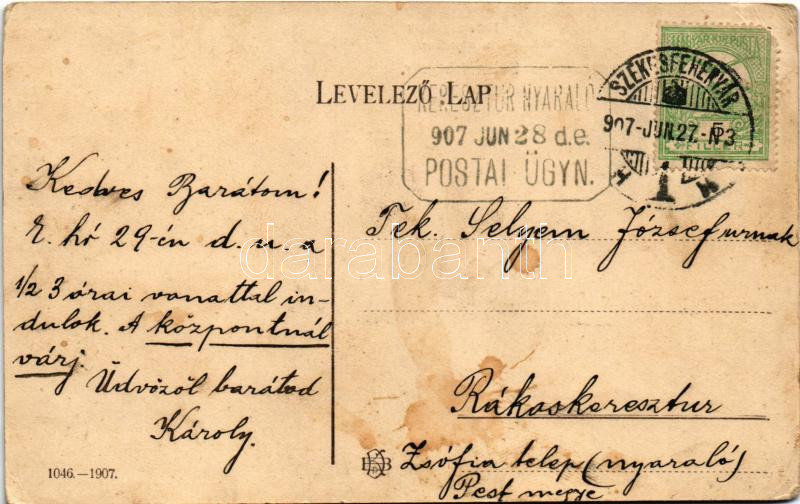 LEVELEZŐ LAP
KERESZTUR NYARALÓ
907 JUN 28 d.e.
POSTAI ÜGYN.
MAGYAR KIR. POSTA
SZÉKESFEHÉRVÁR
907-JUN.27.-N3
1
5
Kedves Barátom!
E. hó 29-én d. u. a
1/2 3 órai vonattal in-
dulok. A központnál
várj.
Üdvözöl barátod
Károly.
Tek. Selyem József urnak
Rákoskeresztur
Zsófia telep (nyaraló)
Pest megye
1046.—1907.
darabanth